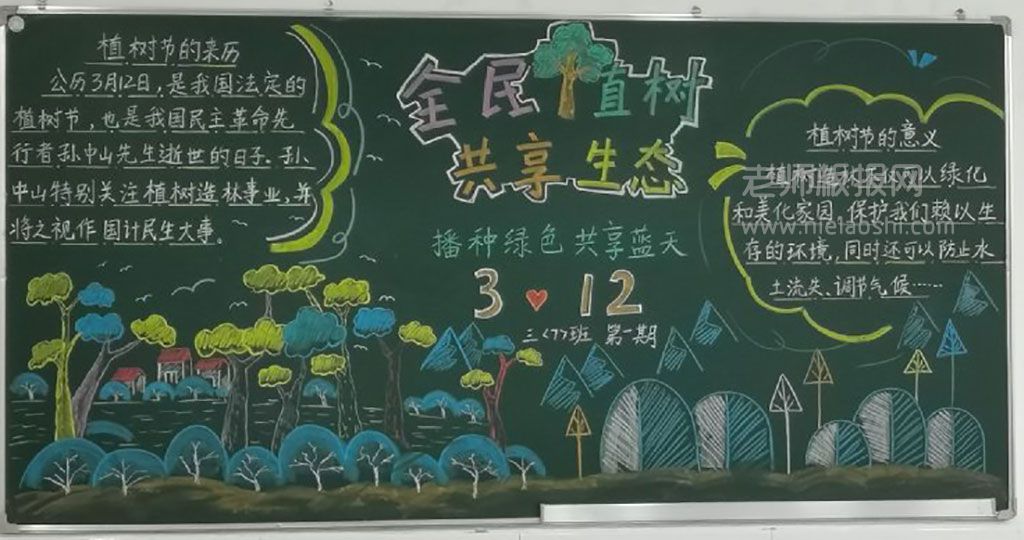 植树节的来历
公历3月12日,是我国法定的
植树节,也是我国民主革命先
行者孙中山先生逝世的日子。孙
中山特别关注植树造林事业,并
将之视作国计民生大事。
全民植树
共享生态
播种绿色 共享蓝天
3 12
三<7>班 第一期
植树节的意义
植树造林不仅可以绿化
和美化家园,保护我们赖以生
存的环境,同时还可以防止水
土流失、调节气候……
老师板报网
www.hielaoshi.com